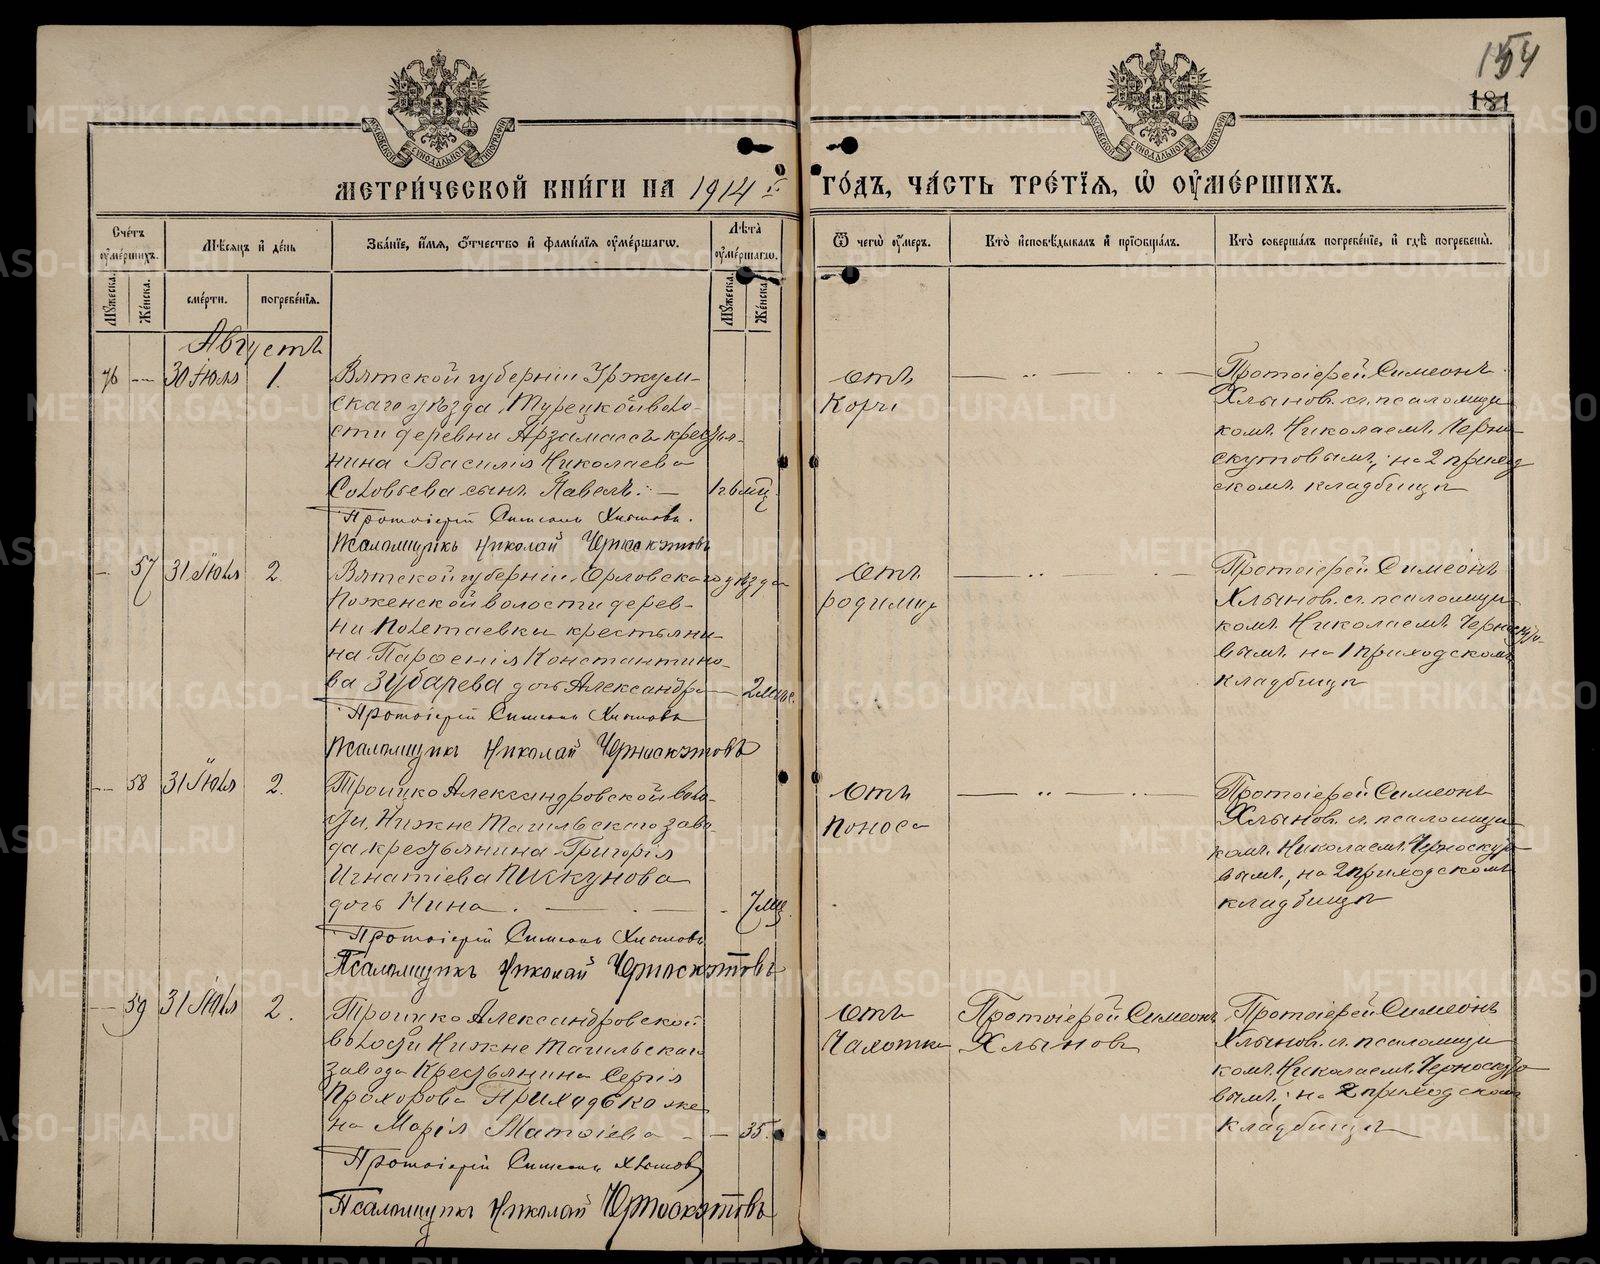 154
181
МЕТРИ́ЧЕСКОЙ КНИ́ГИ НА 1914 й
ГО́ДЪ, ЧА́СТЬ ТРЕ́ТІѦ, Ѡ҆ ОУ҆МЕ́РШИХЪ.
Сче́тъ оу҆ме́ршихъ.
Мꙋ́жеска.
Же́нска.
Мѣ́сяцъ и҆ де́нь
сме́рти.
погребе́нїѧ.
Зва́нїе, и҆́мѧ, ѻ҆́тчество и҆ фами́лїѧ оу҆ме́ршагѡ.
Лѣ́та̀ оу҆ме́ршагѡ.
Мꙋ́жеска.
Же́нска.
Ѿ чегѡ̀ оу҆́меръ.
Кто̀ и҆сповѣ́дывалъ и҆ прїѡбща́лъ.
Кто̀ соверша́лъ погребе́нїе, и҆ гдѣ̀ погребены̀.
Августъ
76 — 30 Іюля 1.
Вятской губерніи Уржум-
скаго уѣзда, Турецкой воло-
сти деревни Арзамассъ кресть-
янина Василія Николаева
Соловьева сынъ Павелъ. — 1 г. 6 мц.
Протоіерей Симеонъ Хлыновъ.
Псаломщикъ Николай Черноскутовъ
отъ
Корчи
Протоіерей Симеонъ
Хлыновъ съ псаломщи
комъ Николаемъ Черно
скутовымъ, на 2 приход
скомъ кладбищѣ
— 57 31 Іюля 2.
Вятской губерніи, Орловскаго уѣзда
Поженской волости дерев-
ни Полетаевки крестьяни-
на Парѳенія Константино-
ва Зубарева дочь Александра — 2 мѣс.
Протоіерей Симеонъ Хлыновъ
Псаломщикъ Николай Черноскутовъ
отъ
родимца
Протоіерей Симеонъ
Хлыновъ съ псаломщи
комъ Николаемъ Черноскуто-
вымъ на 1 приходскомъ
кладбищѣ
— 58 31 Іюля 2.
Троицко Александровской воло-
сти, Нижне Тагильскаго заво-
да крестьянина Григорія
Игнатіева Пиккунова
дочь Нина. — 7 мц.
Протоіерей Симеонъ Хлыновъ
Псаломщикъ Николай Черноскутовъ
отъ
поноса
Протоіерей Симеонъ
Хлыновъ съ псаломщи
комъ Николаемъ Черноскуто
вымъ, на 2 приходскомъ
кладбищѣ
— 59 31 Іюля 2.
Троицко Александровской
волости Нижне Тагильскаго
завода Крестьянина Сергія
Прохорова Приходько же
на Марія Матѳіева — 35.
Протоіерей Симеонъ Хлыновъ
Псаломщикъ Николай Черноскутовъ
отъ
Чахотки
Протоіерей Симеонъ
Хлыновъ
Протоіерей Симеонъ
Хлыновъ съ псаломщи
комъ Николаемъ Черноскуто
вымъ, на 2 приходскомъ
кладбищѣ
METRIKI.GASO-URAL.RU